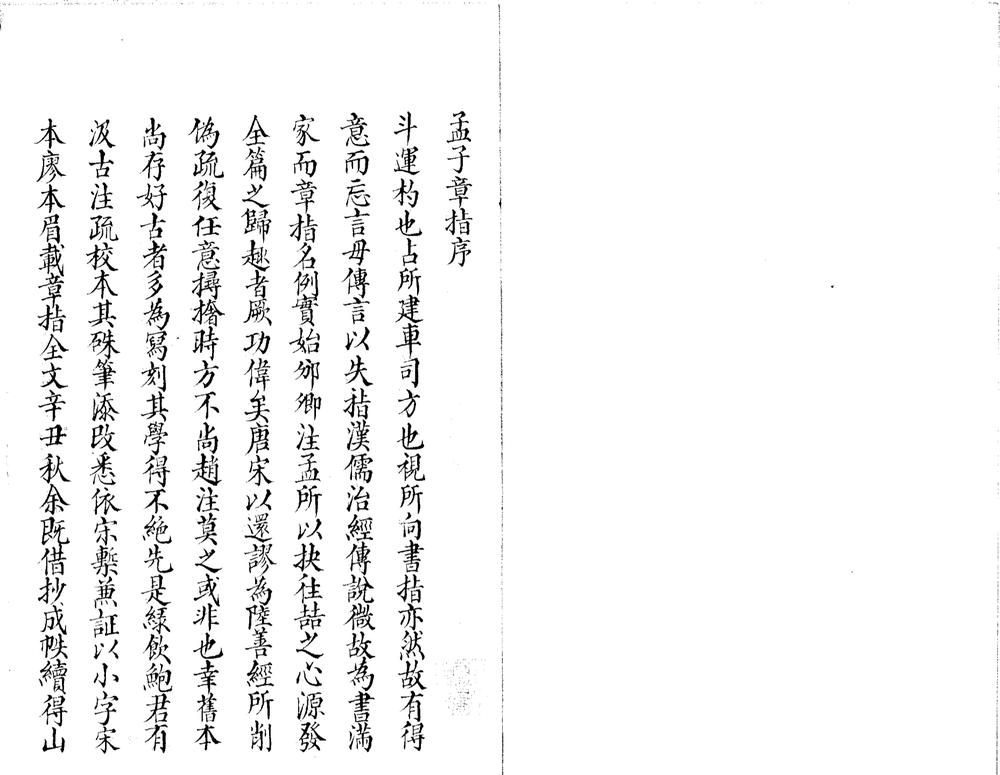 孟子章指序
斗運杓也占所建車司方也視所向書指亦然故有得
意而忘言毋傳言以失指漢儒治經傳說微故為書滿
家而章指名例實始邠卿注孟所以抉往喆之心源發
全篇之歸趣者厥功偉矣唐宋以還謬為陸善經所削
偽疏復任意撏撦時方不尚趙注莫之或非也幸舊本
尚存好古者多為寫刻其學得不絶先是綠飲鮑君有
汲古注疏校本其硃筆添改悉依宋槧兼証以小字宋
本廖本眉載章指全文辛丑秋余既借抄成帙續得山